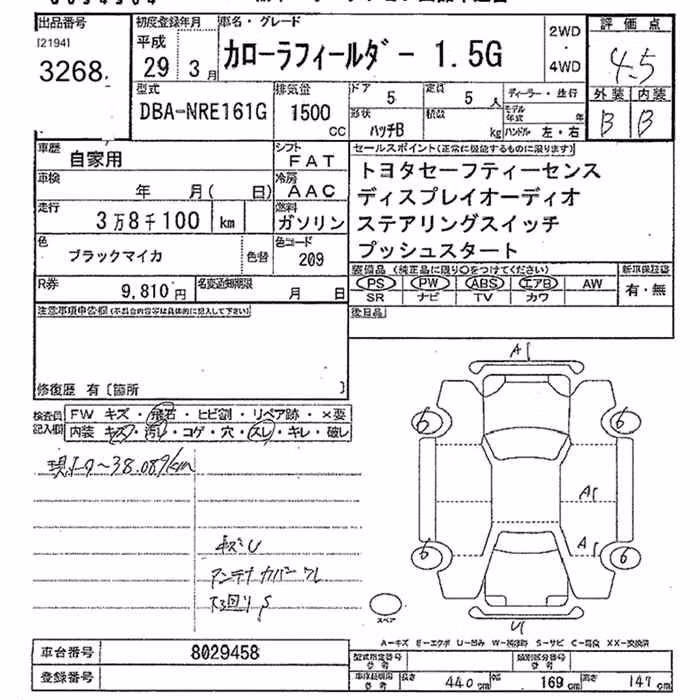 出品番号 初度登録年月 車名・グレード 2WD 評価点
[2194] 平成 カローラフィールダー 1.5G 4.5
3268 29年 3月 4WD
外装 内装
型式 排気量 ドア 定員 ディーラー・並行 B B
DBA-NRE161G 1500 5 5人 モデル年式 年
CC 形状 積数 ハンドル 左・右
ハッチB kg
車歴 シフト セールスポイント(正常に機能するものに限ります)
自家用 FAT トヨタセーフティーセンス
車検 冷房
年 月( 日) AAC ディスプレイオーディオ
走行 燃料
3万8千100 km ガソリン ステアリングスイッチ
色 色替 色コード プッシュスタート
ブラックマイカ 209
装備品(純正品に限り○をつけてください) 新車保証書
R券 名変通知期限 PS PW ABS エアB AW 有・無
9,810円 月 日 SR ナビ TV カワ
注意事項申告欄(不具合内容等は具体的に記入して下さい) 後日品
修復歴 有〔箇所 〕
A1
検査員 FW キズ・飛石・ヒビ割・リペア跡・×要
記入欄 内装 キズ・汚レ・コゲ・穴・スレ・キレ・破レ
6 6
38.089km
A1
A1
キズU
アンテナカバー
下回りS
6 6
スペア
U
A-キズ E-エクボ U-凹み W-補修跡 S-サビ C-腐食 XX-交換済
車台番号 8029458 型式指定番号 類別区分番号
参考 参考
登録番号 車体諸元用参考 長さ 440cm 幅 169cm 高さ 147cm